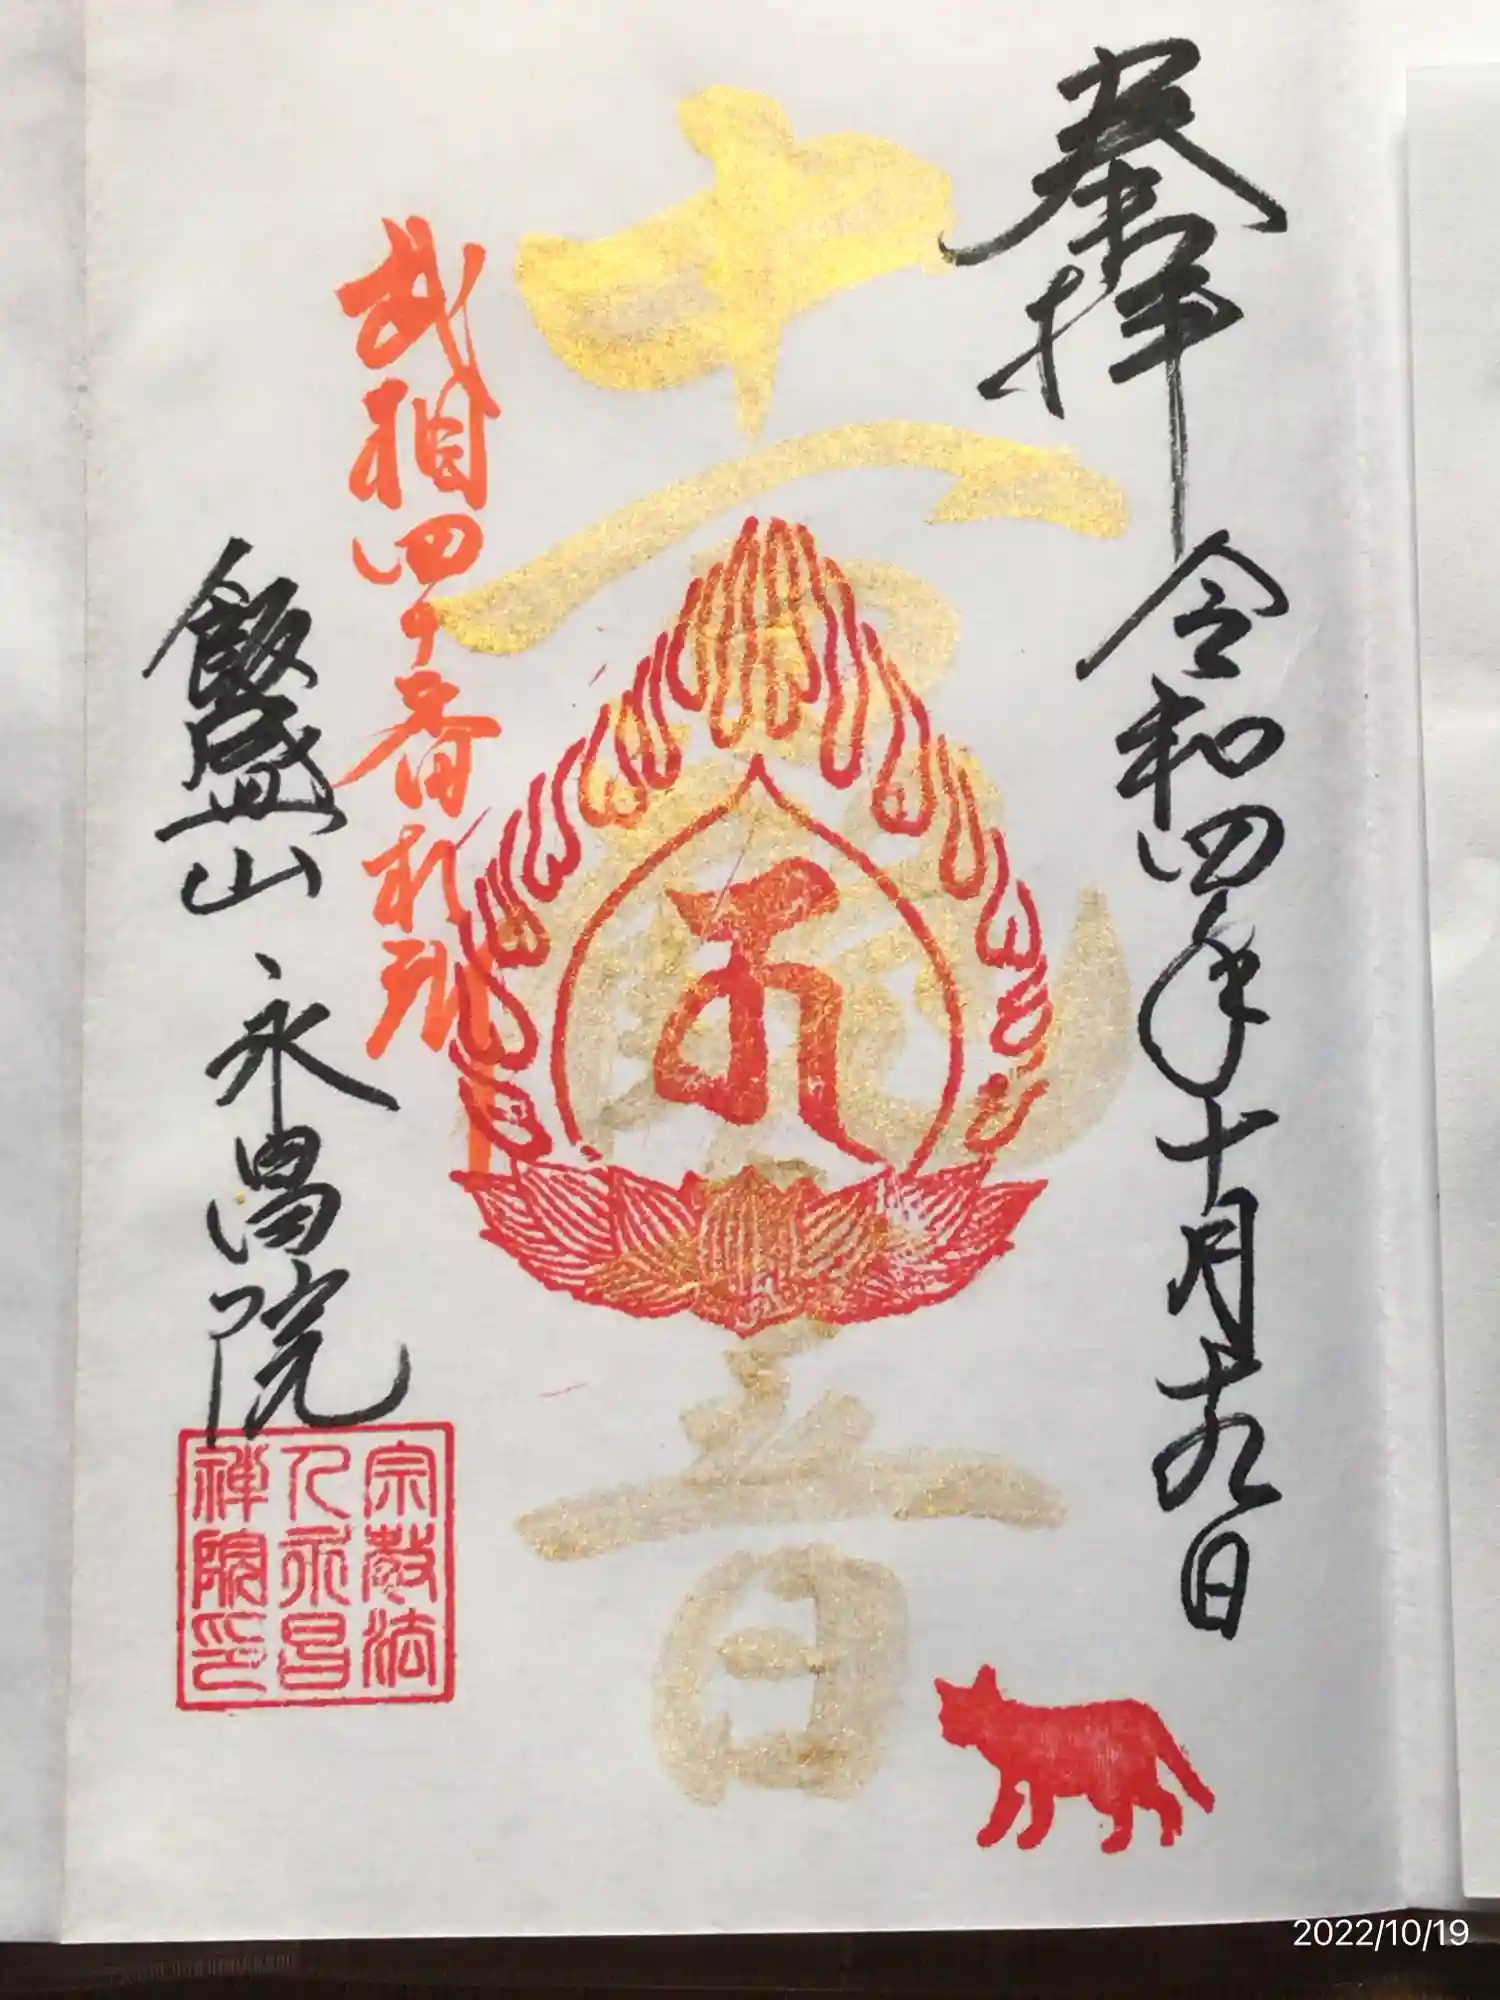 奉拝
令和四年十月十九日
十一面観音
武相四十番札所
飯盛山 永昌院
宗教法
人永昌
禅院印
2022/10/19